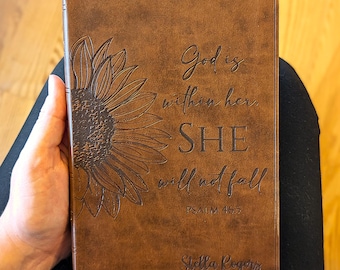 God is
within her
SHE
will not fall
PSALM 46:5
Stella Rogers